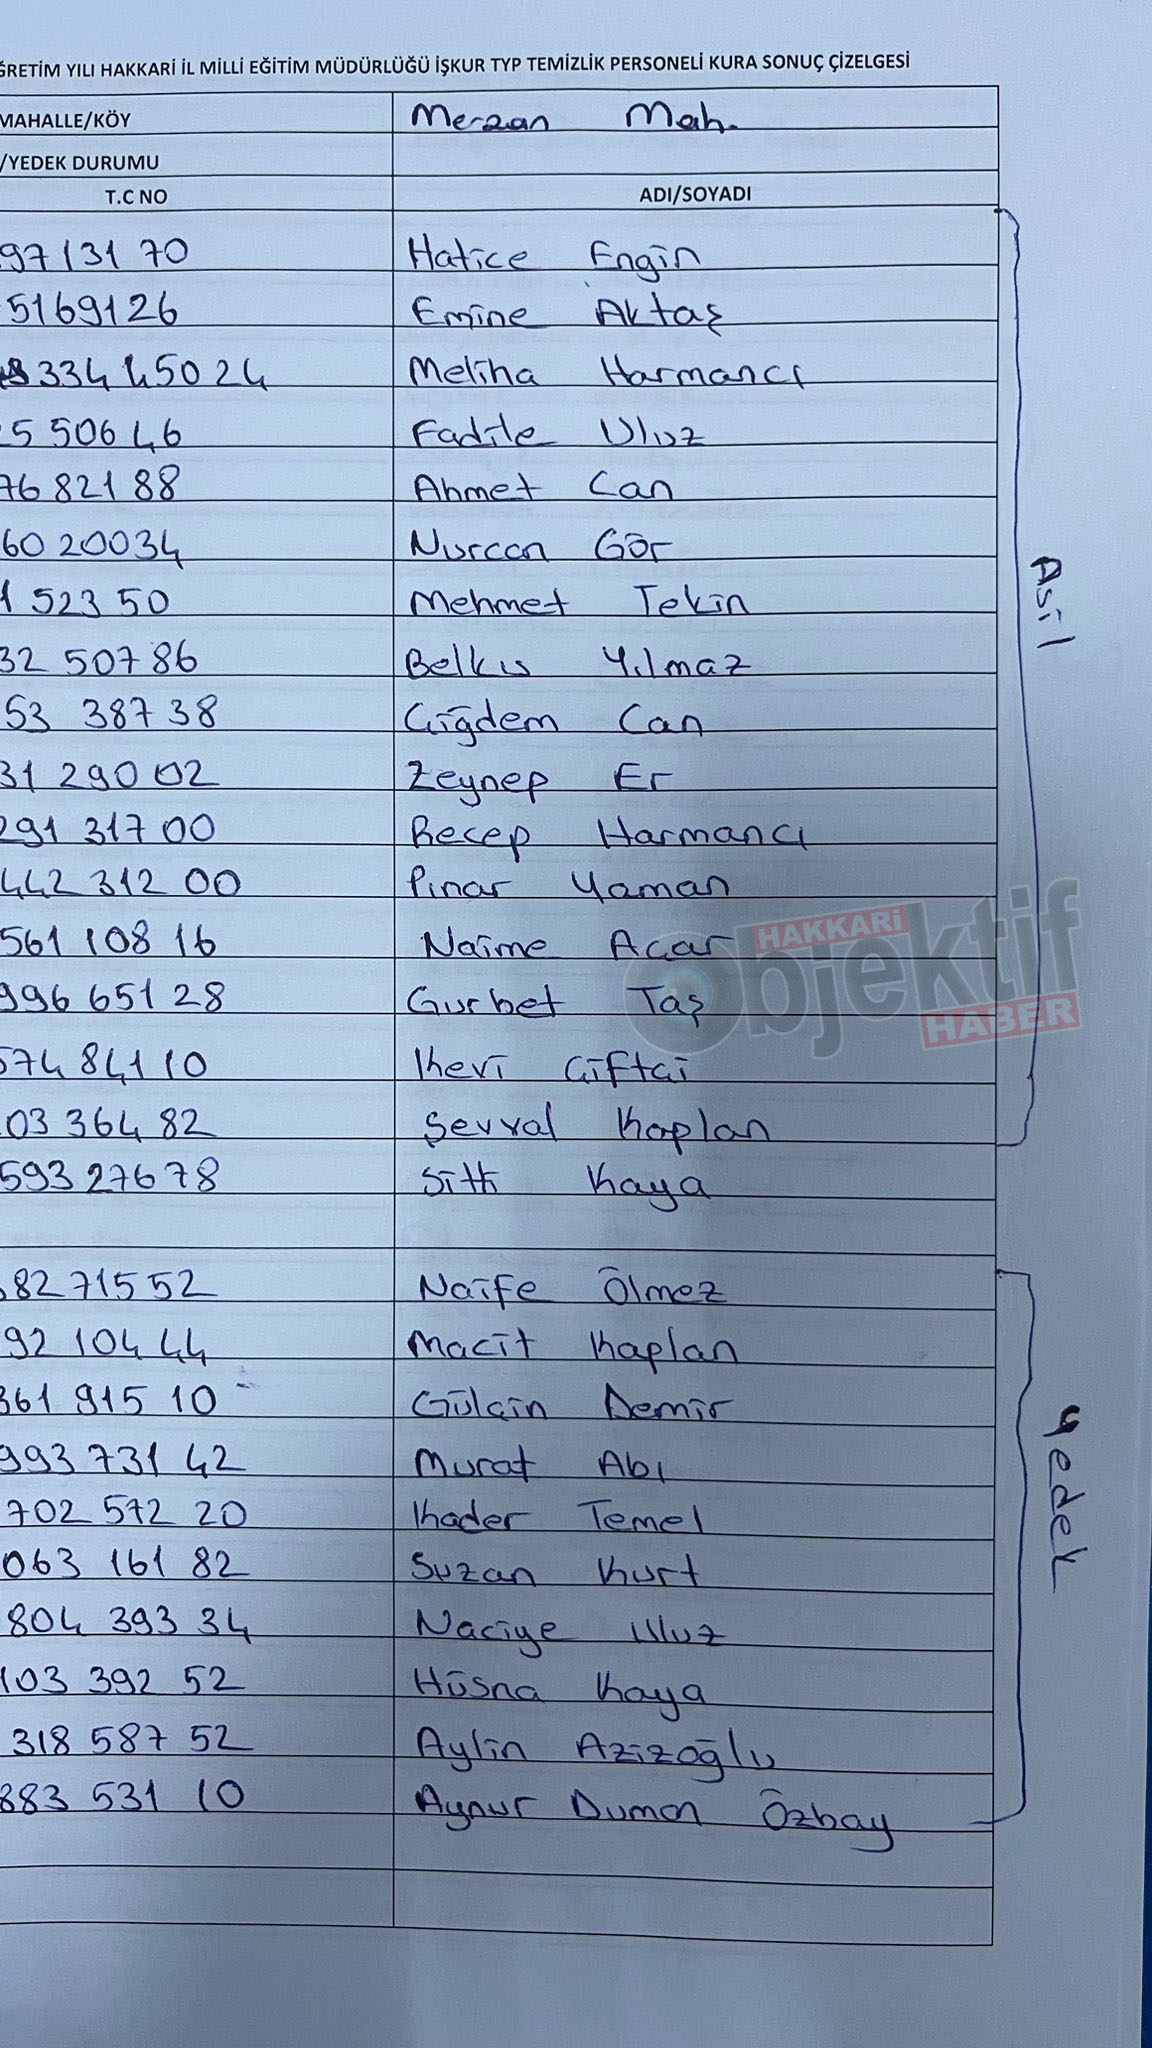 ĞRETİM YILI HAKKARİ İL MİLLİ EĞİTİM MÜDÜRLÜĞÜ İŞKUR TYP TEMİZLİK PERSONELİ KURA SONUÇ ÇİZELGESİ
MAHALLE/KÖY Merzan Mah.
/YEDEK DURUMU
T.C NO ADI/SOYADI
97131 70 Hatice Engin
5169126 Emine Aktaş
334 450 24 Meliha Harmancı
5 506 46 Fadile Uluz
76 821 88 Ahmet Can
60 20034 Nurcan Gör
1 523 50 Mehmet Tekin
32 507 86 Belkıs Yılmaz
53 387 38 Çiğdem Can
31 290 02 Zeynep Er
291 317 00 Recep Harmancı
442 312 00 Pınar Yaman
561 108 16 Naime Acar
996 651 28 Gurbet Taş
574 841 10 Kevi Çiftçi
03 364 82 Şevval Kaplan
593 276 78 Sitti Kaya
Asil
HAKKARİ
Objektif
HABER
82 715 52 Naife Ölmez
92 104 44 Macit Kaplan
361 915 10 Gülçin Demir
993 731 42 Murat Abı
702 572 20 Kader Temel
063 161 82 Suzan Kurt
804 393 34 Naciye Uluz
103 392 52 Hüsna Kaya
318 587 52 Aylin Azizoğlu
883 531 10 Aynur Duman Özbay
Yedek